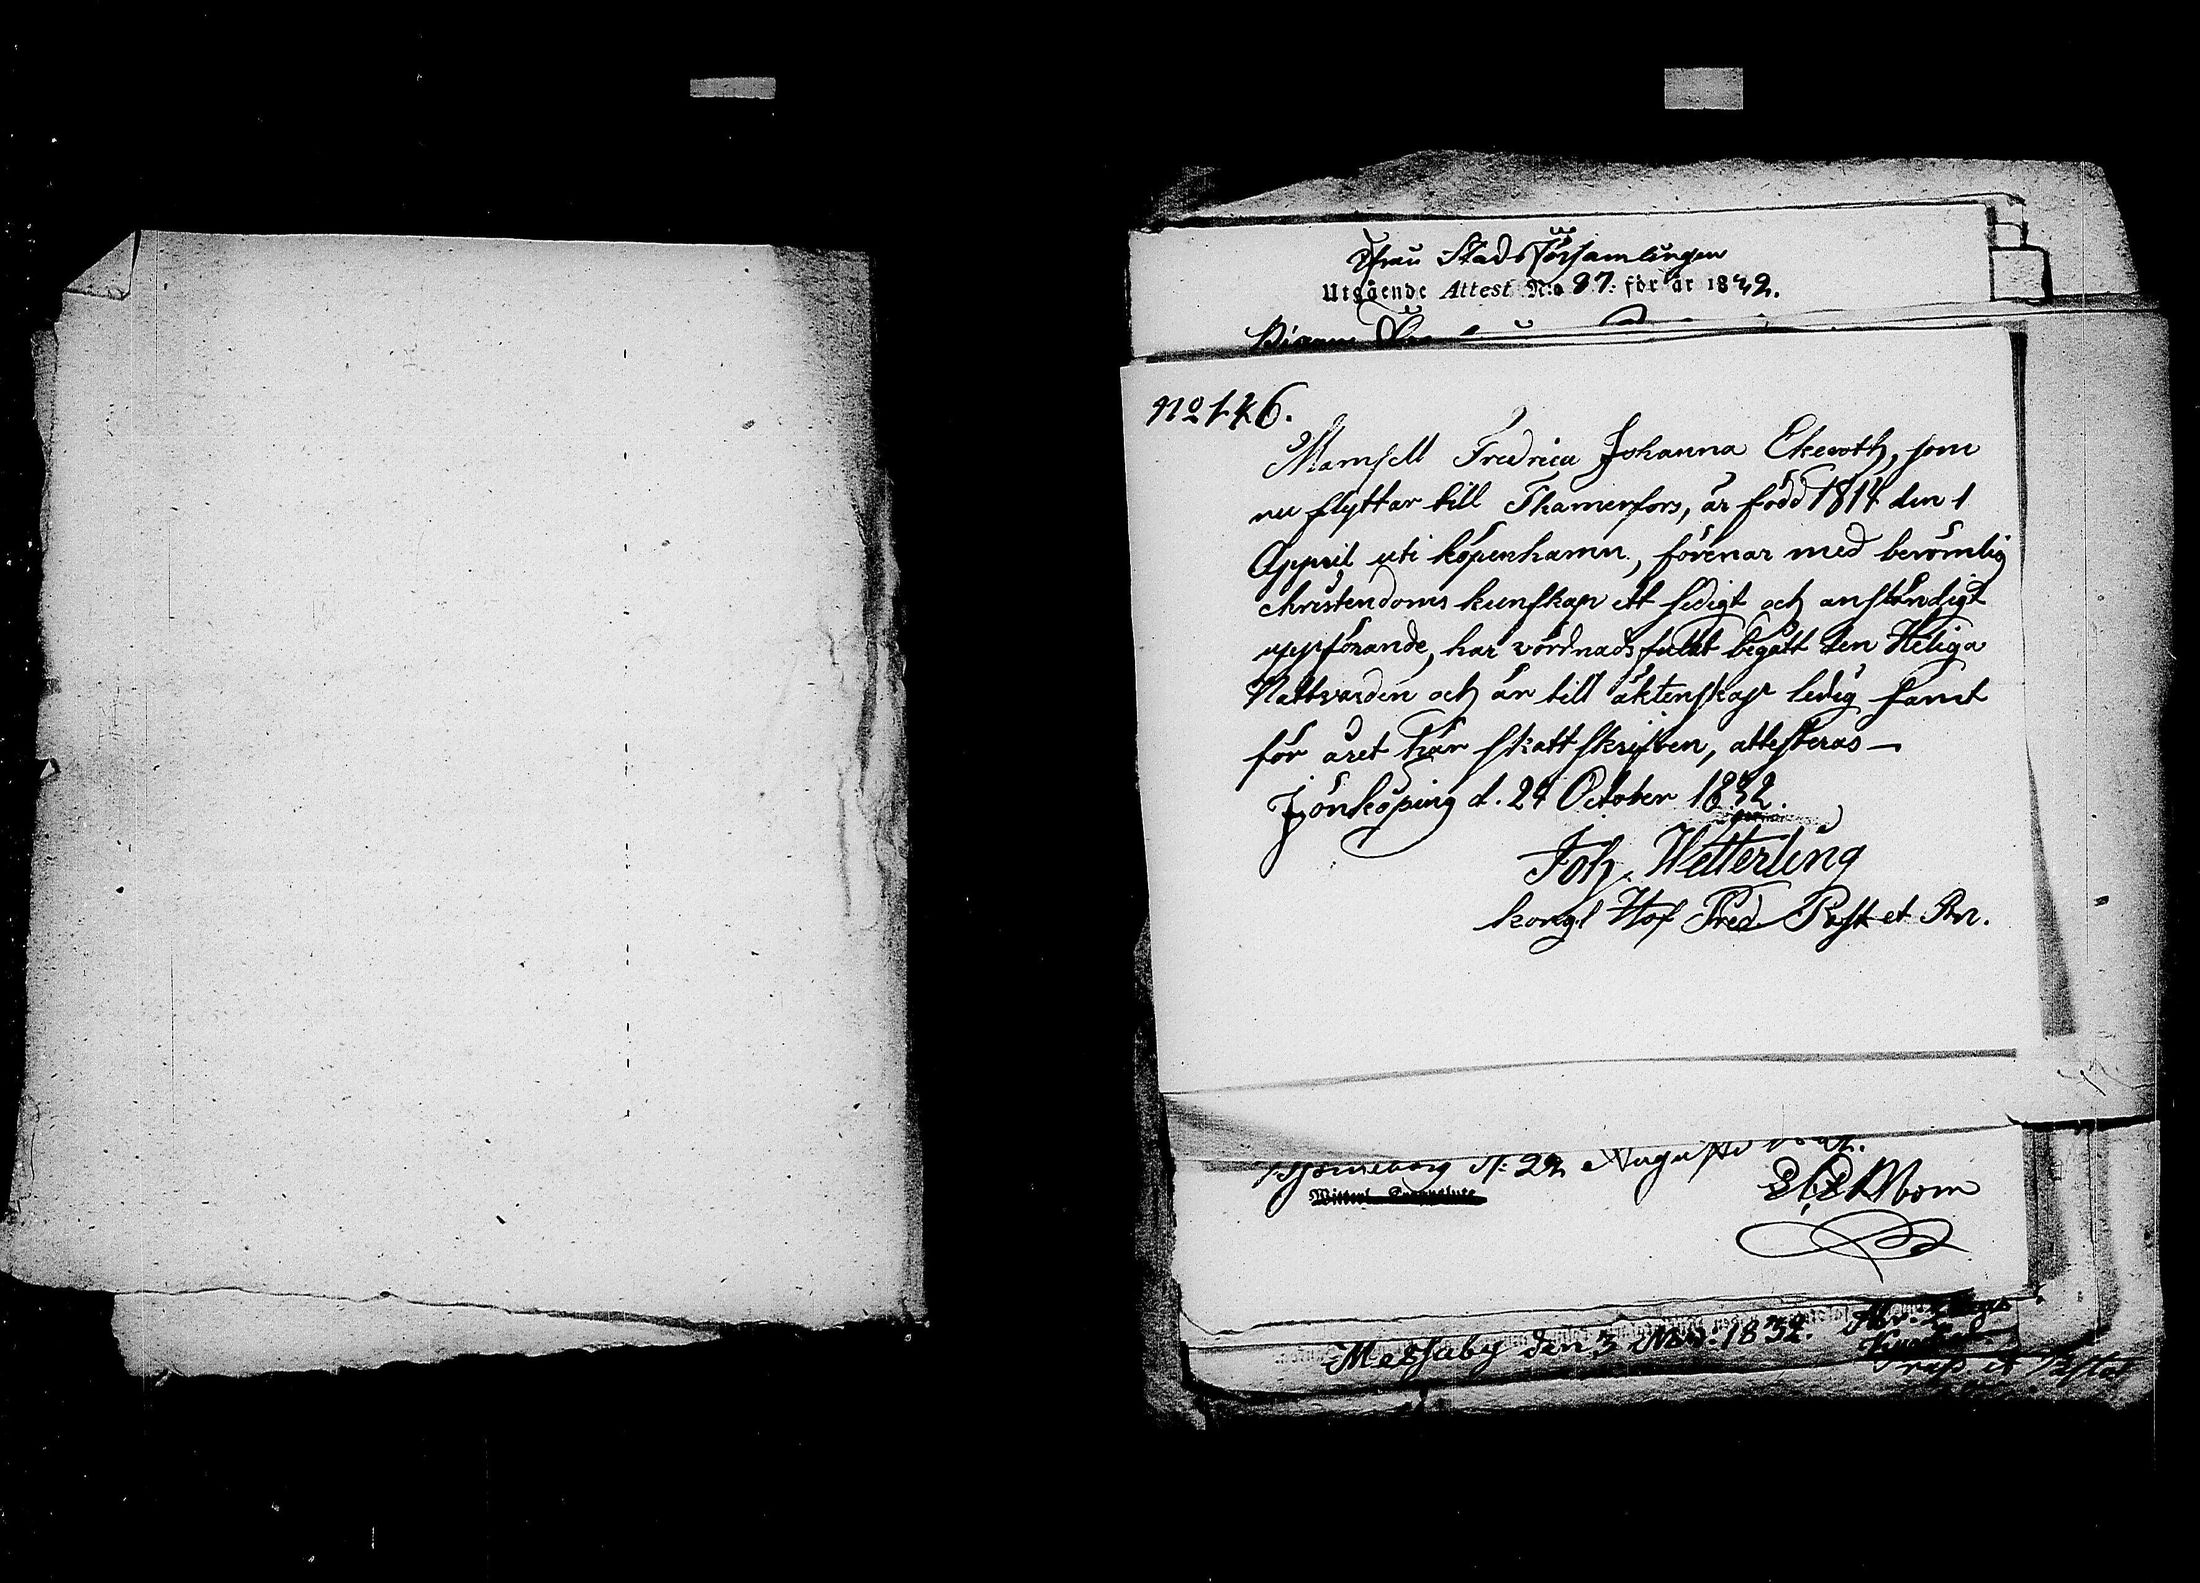 Ifrån Stads Församlingen
Utgående Attest N:o 87. för år 1832.
No 146.
Mamsell Fredrica Johanna Ekeroth, som
nu flyttar till Thamersfors, är född 1814 den 1
Appril uti köpenhamn, förenar med berömlig
christendoms kunskap ett sedigt och anständigt
uppförande, har vördnadsfullt begått den Heliga
Nattvarden och är till äktenskap ledig samt
för året här skattskrifven, attesteras —
Jönköping d. 24 October 1832.
Joh. Wetterling
kongl Hof Pred. Past et Pr.
d: 24 Augusti
Messuby den 3 Nov: 1832.